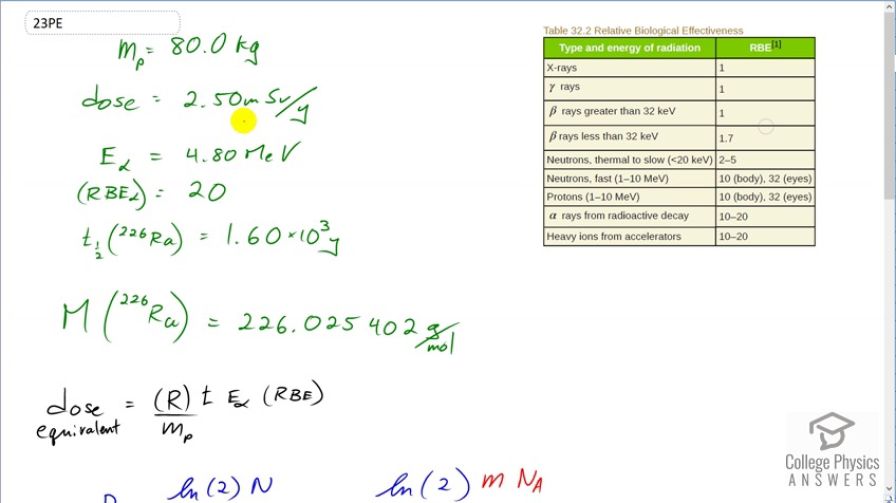 23PE
m_p = 80.0 kg
dose = 2.50 mSv/y
E_α = 4.80 MeV
(RBE_α) = 20
t_{1/2} (²²⁶Ra) = 1.60 × 10³ y
M (²²⁶Ra) = 226.025402 g/mol
dose equivalent = (R) t E_α (RBE) / m_p
ln(2) N ln(2) m N_A
Table 32.2 Relative Biological Effectiveness
Type and energy of radiation RBE[1]
X-rays 1
γ rays 1
β rays greater than 32 keV 1
β rays less than 32 keV 1.7
Neutrons, thermal to slow (<20 keV) 2–5
Neutrons, fast (1–10 MeV) 10 (body), 32 (eyes)
Protons (1–10 MeV) 10 (body), 32 (eyes)
α rays from radioactive decay 10–20
Heavy ions from accelerators 10–20
College Physics
ANSWERS